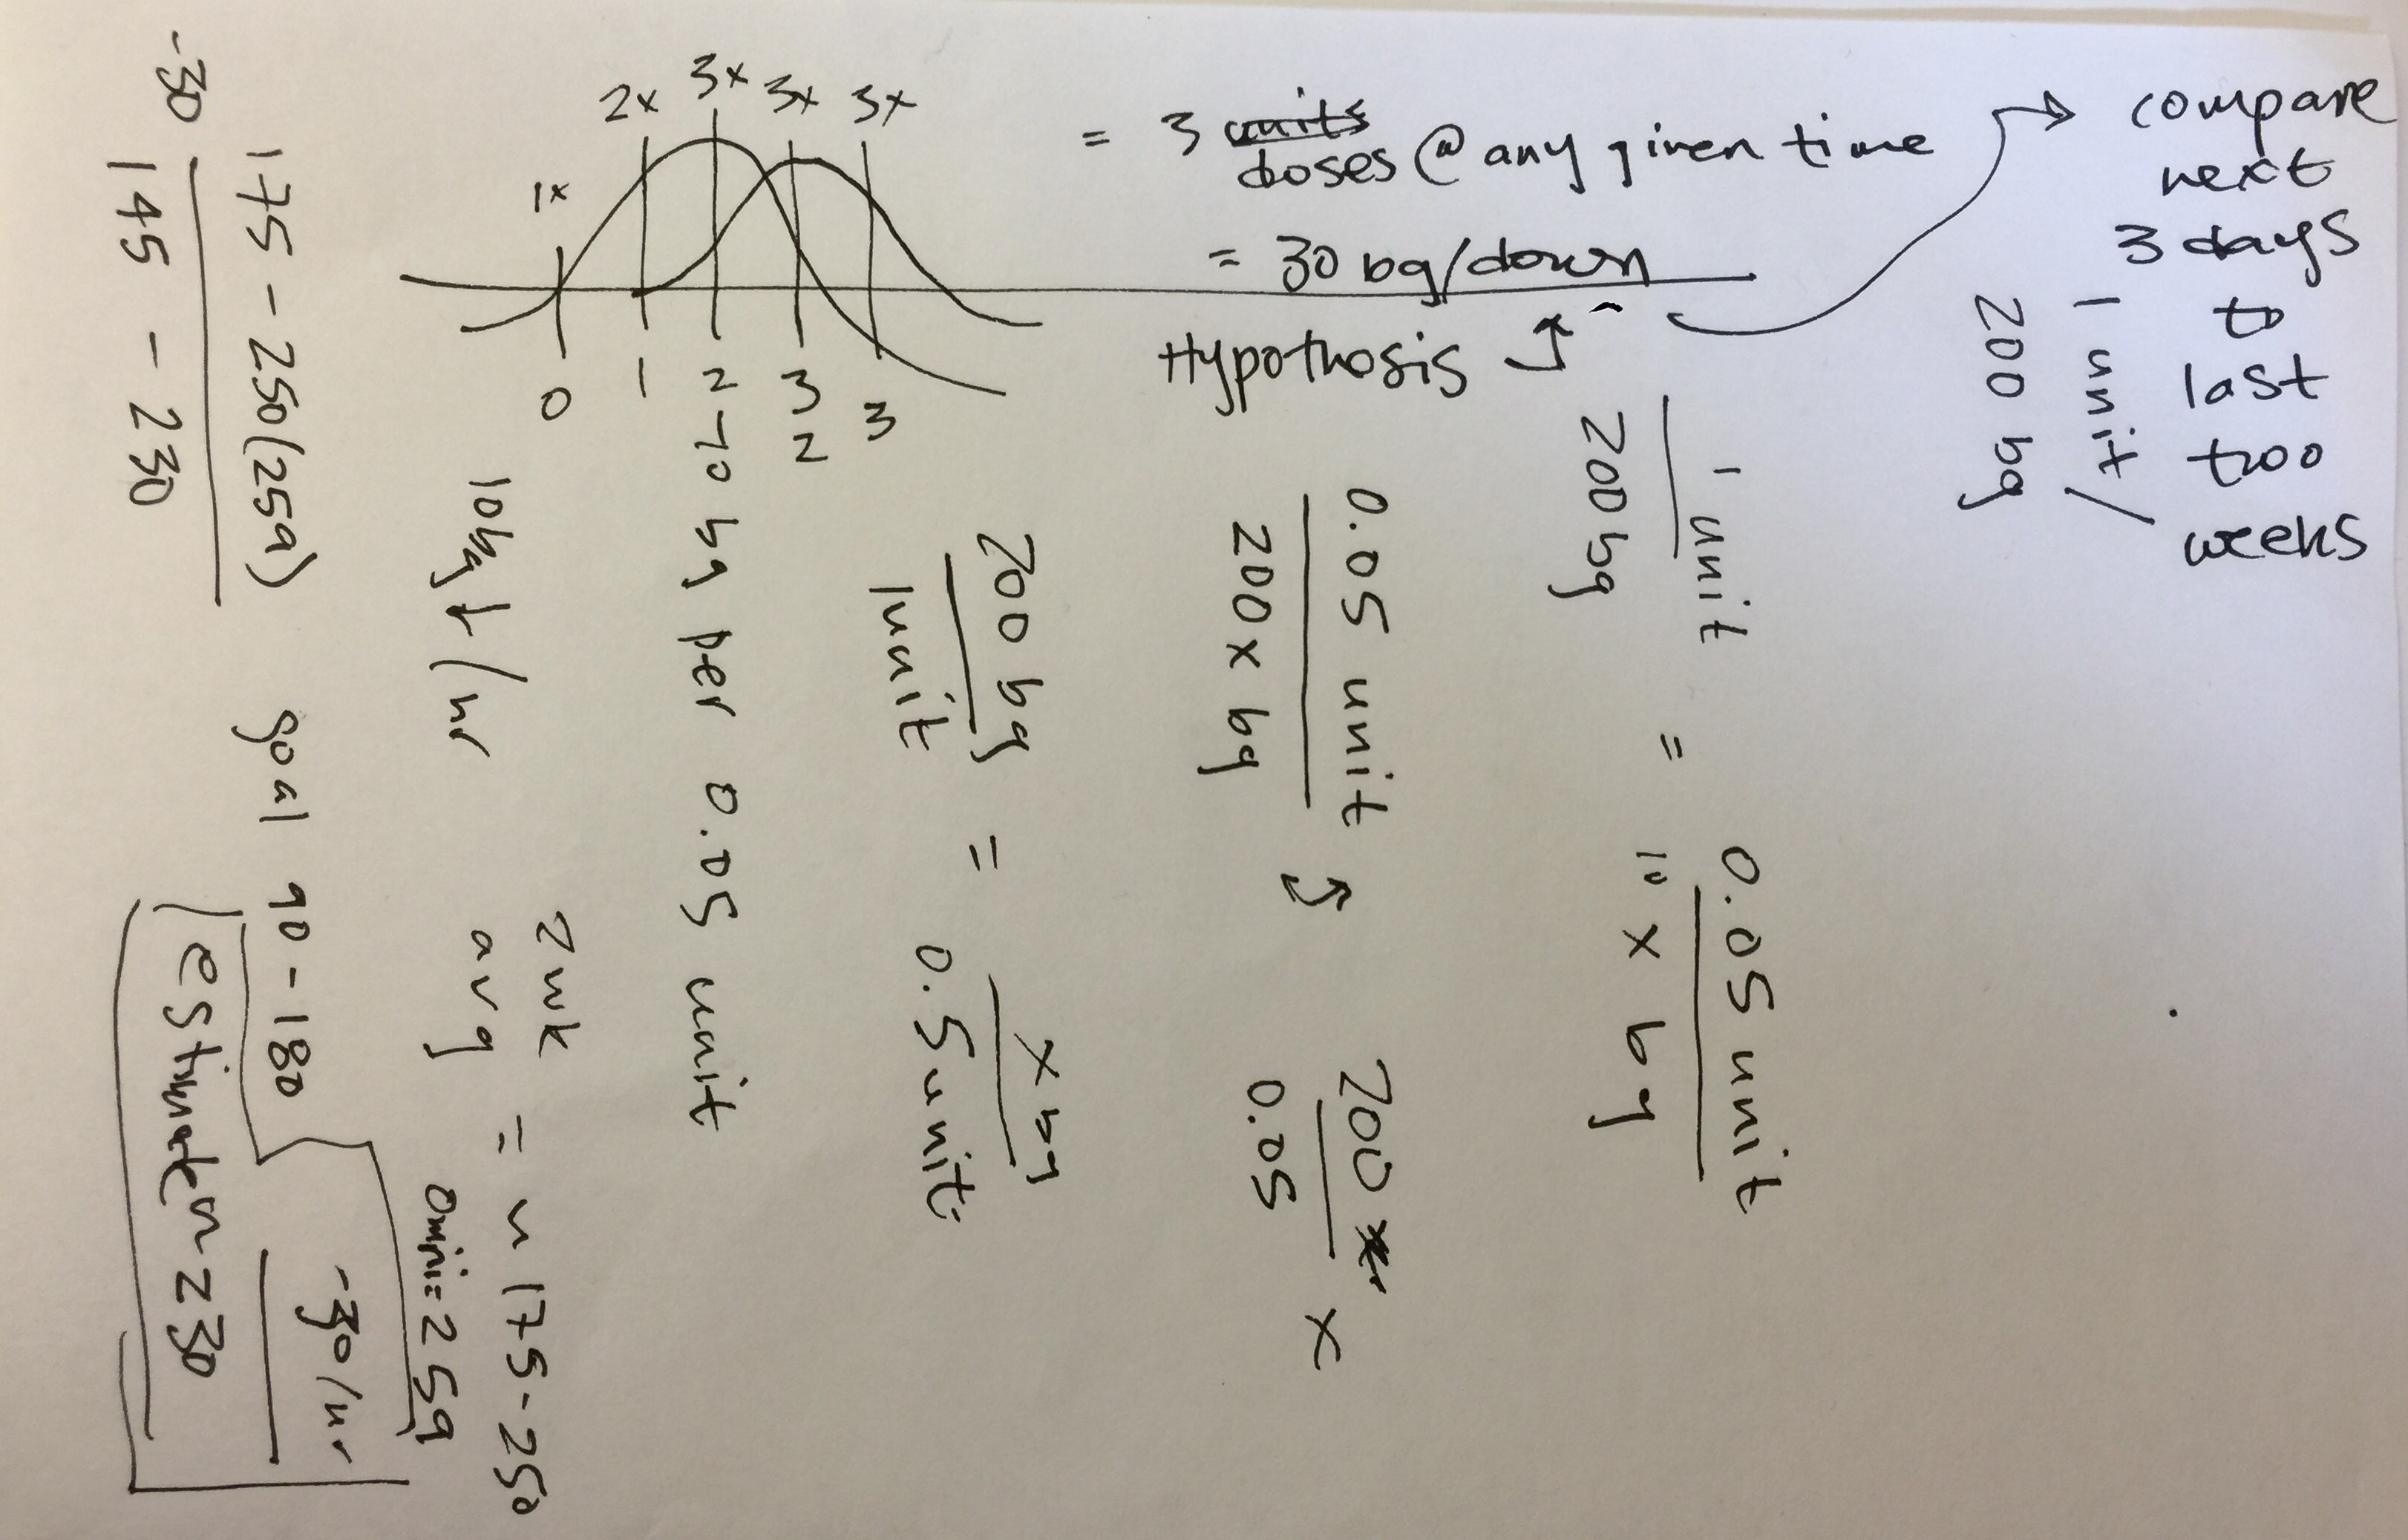 1x
2x
3x
3x
3x
0
1
2
3
3
2
= 3 units
doses @ any given time
= 30 bg/down
Hypothosis
compare
next
3 days
to
last
two
weeks
1 unit/
200 bg
1 unit
200 bg
=
0.05 unit
10 x bg
0.05 unit
200 x bg
200
0.05
x
200 bg
1 unit
=
x bg
0.5 unit
10 bg per 0.05 unit
2 wk
avg
= ~ 175-250
omni = 259
10bg ↓/hr
175 - 250(259)
-30
145 - 230
goal 90-180
-30/hr
estimate ~ 230